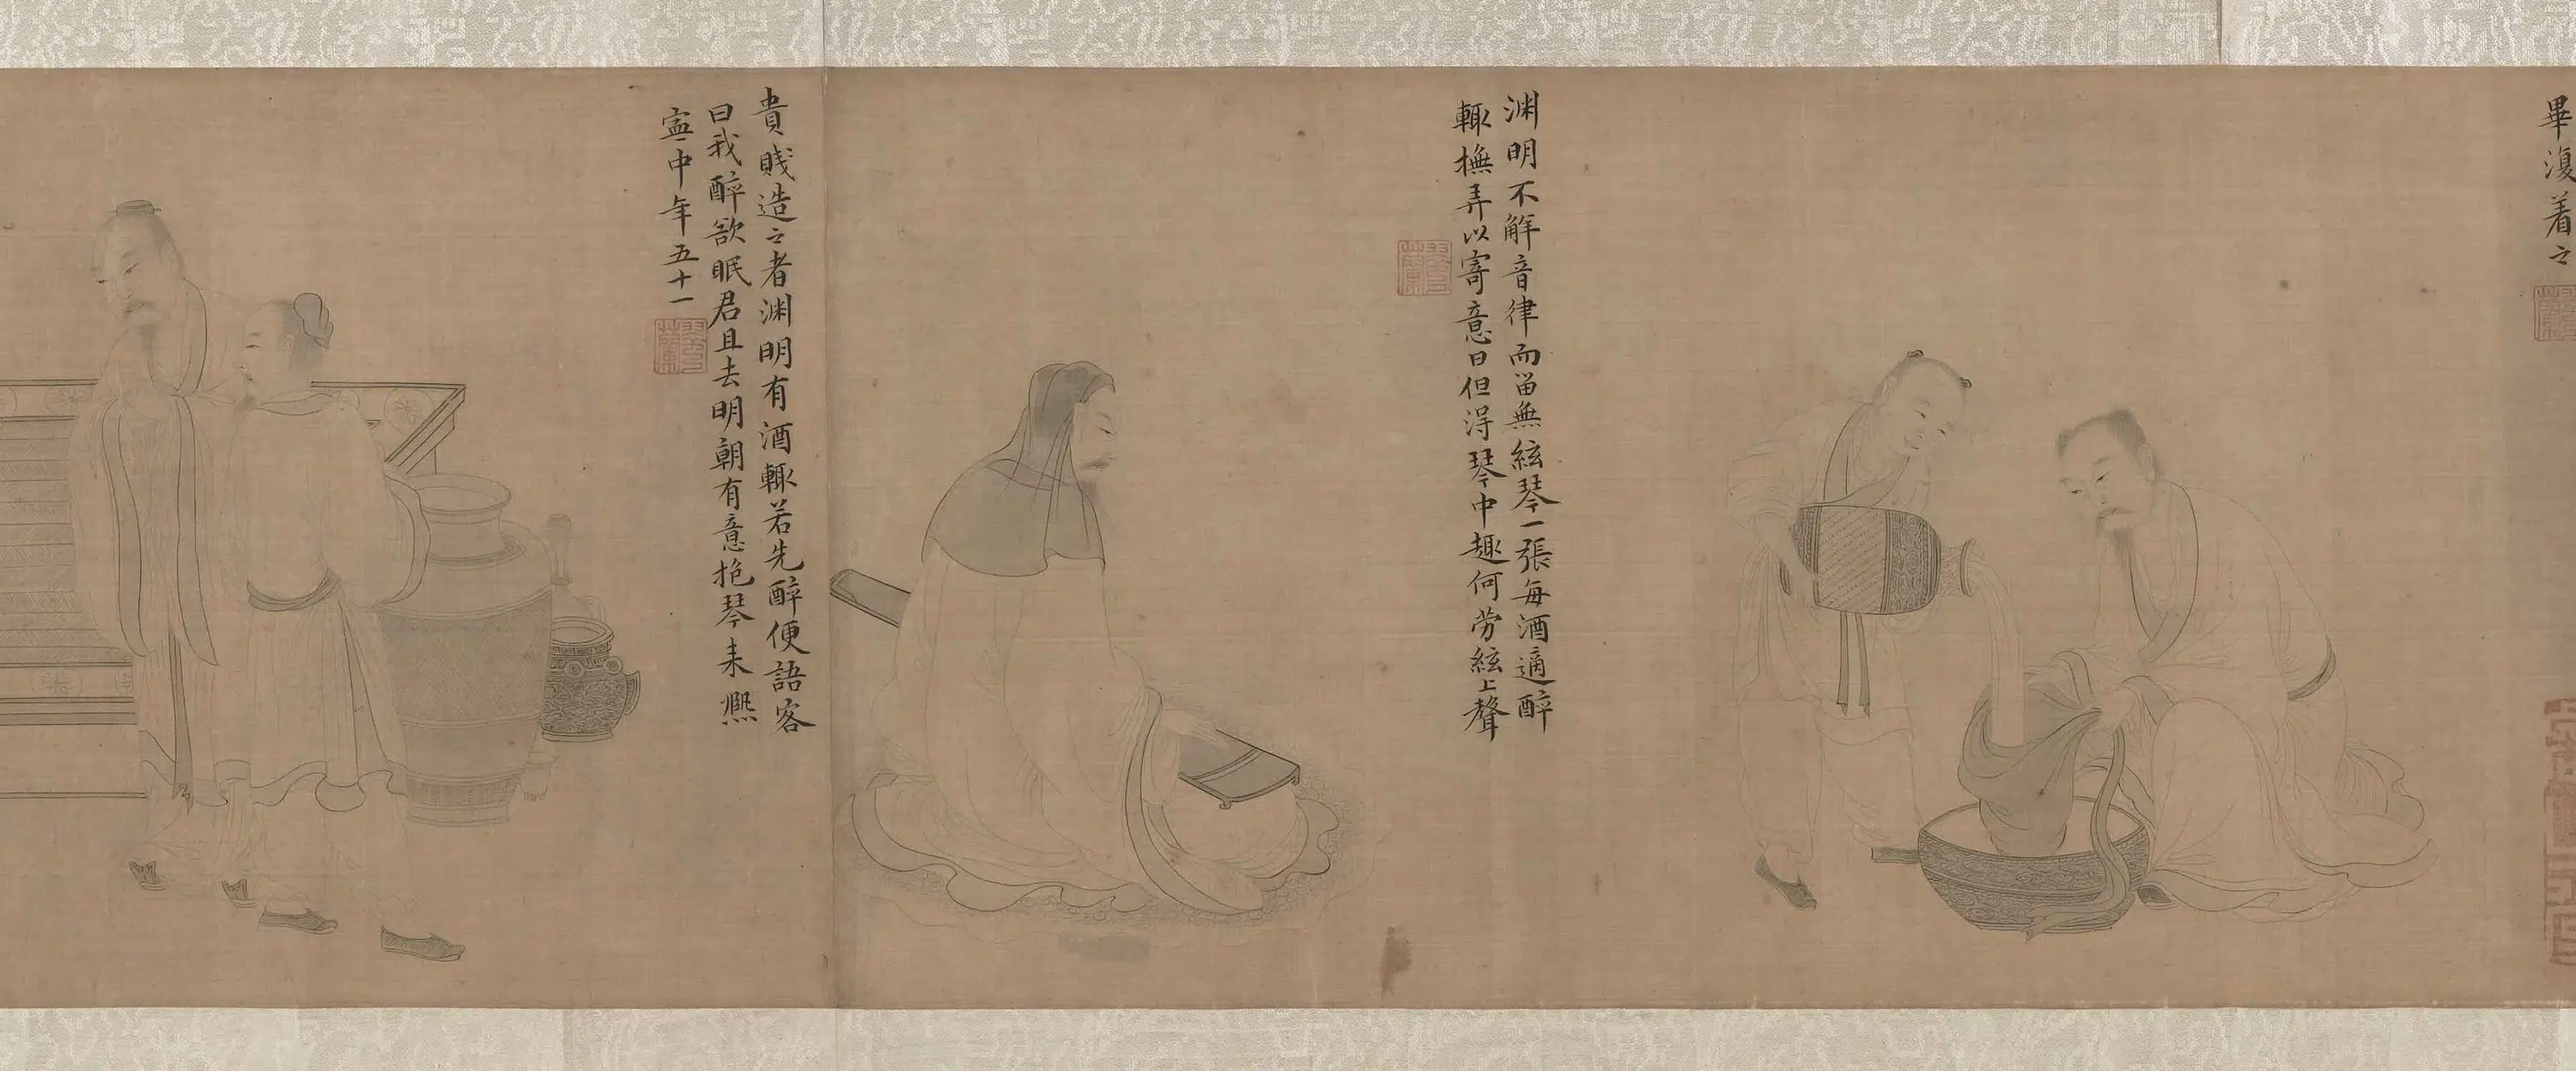 畢復着之
渊明不解音律而畄無絃琴一張每酒適醉
輙撫弄以寄意曰但得琴中趣何劳絃上聲
貴賤造之者渊明有酒輙若先醉便語客
曰我醉欲眠君且去明朝有意抱琴来熈
寍中年五十一